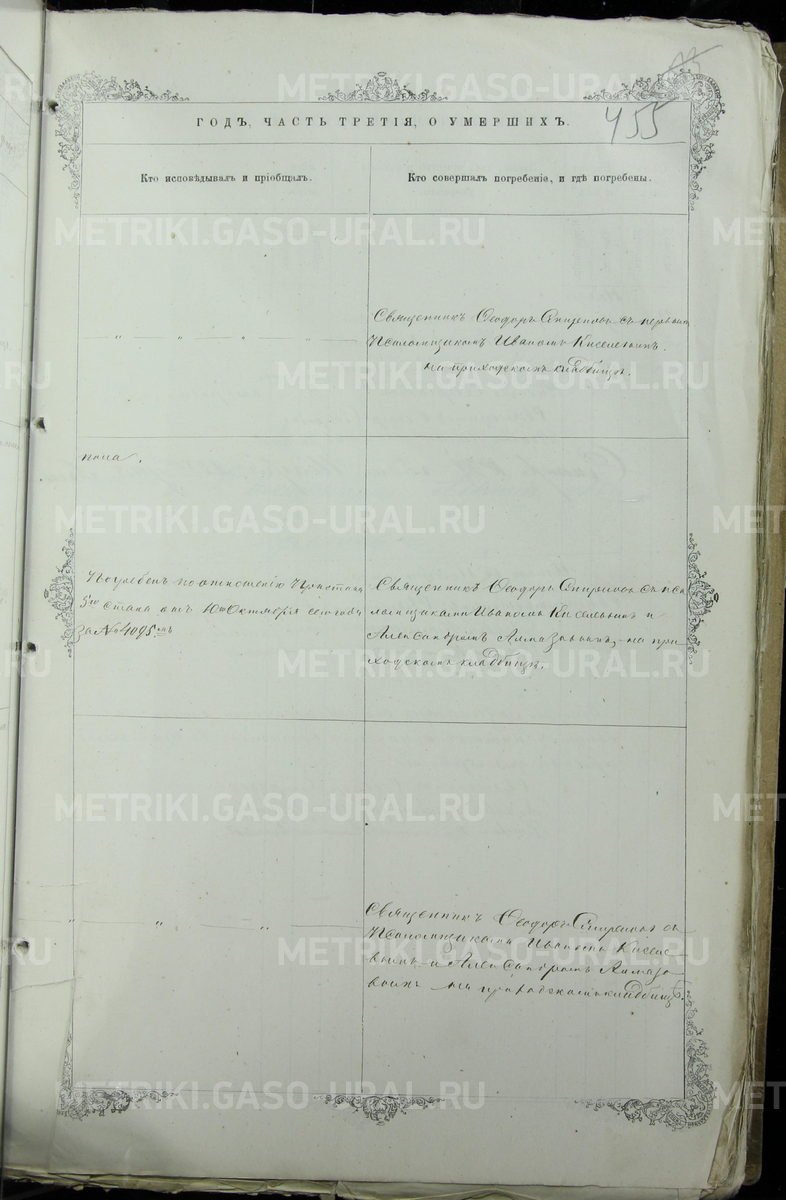 455
ГОДЪ, ЧАСТЬ ТРЕТІЯ, О УМЕРШИХЪ.
Кто исповѣдывалъ и пріобщалъ.
Кто совершалъ погребеніе, и гдѣ погребены.
Священникъ Ѳеодоръ съ
Псаломщикомъ Иваномъ Киселевымъ
на приходскомъ кладбищѣ.
Погребенъ по отношенію Пристава
5го стана отъ 10го Октября сего года
за № 4095мъ
Священникъ Ѳеодоръ съ пса
ломщиками Иваномъ Киселевымъ и
Александромъ Алмазовымъ на при
ходскомъ кладбищѣ.
Священникъ Ѳеодоръ съ
Псаломщиками Иваномъ Киселе
вымъ и Александромъ Алмазо
вымъ на приходскомъ кладбищѣ.
METRIKI.GASO-URAL.RU